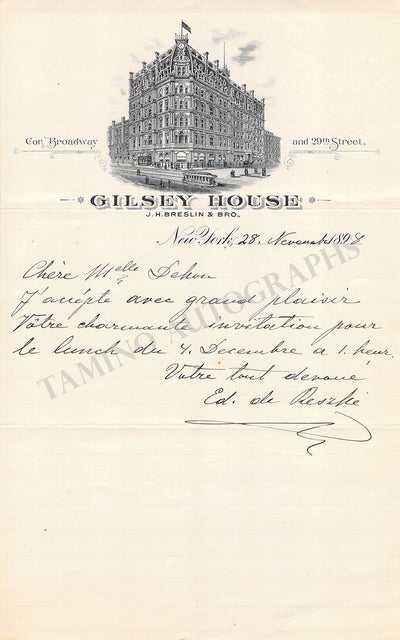 Cor. Broadway
and 29th Street.
GILSEY HOUSE
J. H. BRESLIN & BRO.,
New York, 28. Novemb 1898
Chère Melle Dehon
J'accépte avec grand plaisir
Vôtre charmante invitation pour
le lunch du 4. Decembre a 1. heur.
Votre tout devoué
Ed. de Reszke
TAMINO AUTOGRAPHS